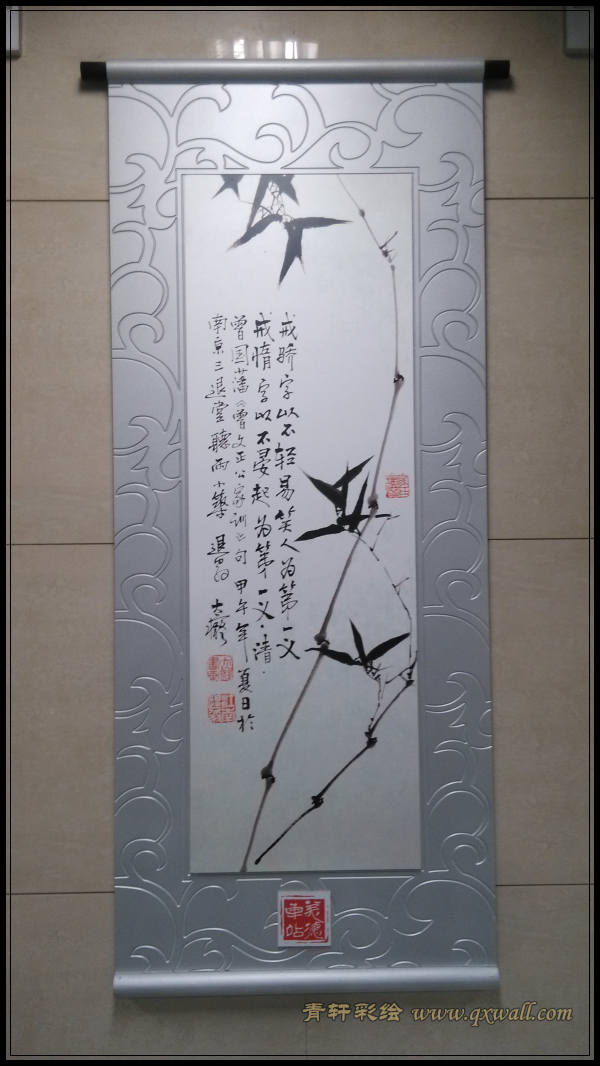 戒骄字以不轻易笑人为第一义
戒惰字以不晏起为第一义·清·
曾国藩《曾文正公家训》句 甲午年夏日於
南京三退堂聽雨小築 退翁
美德
車站
青轩彩绘 www.qxwall.com